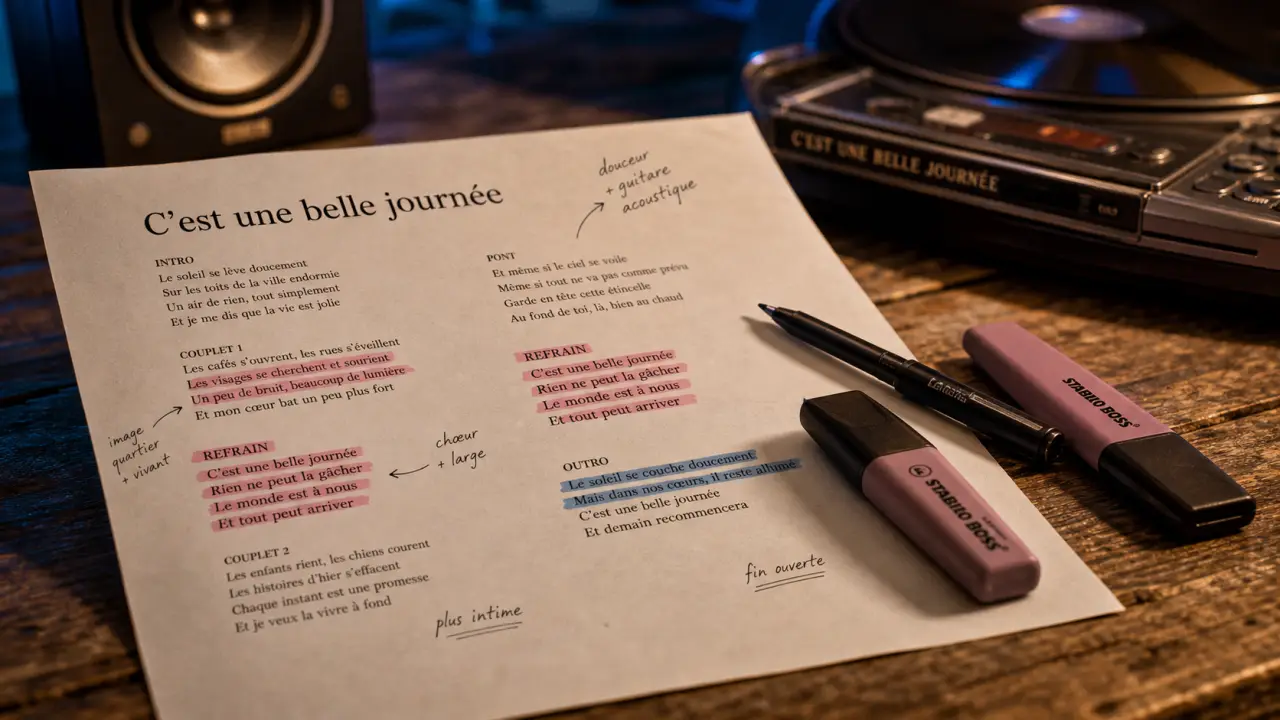 C'est une belle journée
INTRO
Le soleil se lève doucement
Sur les toits de la ville endormie
Un air de rien, tout simplement
Et je me dis que la vie est jolie
COUPLET 1
Les cafés s'ouvrent, les rues s'éveillent
Les visages se cherchent et sourient
Un peu de bruit, beaucoup de lumière
Et mon cœur bat un peu plus fort
image
quartier
+ vivant
REFRAIN
C'est une belle journée
Rien ne peut la gâcher
Le monde est à nous
Et tout peut arriver
chœur
+ large
COUPLET 2
Les enfants rient, les chiens courent
Les histoires d'hier s'effacent
Chaque instant est une promesse
Et je veux la vivre à fond
plus intime
douceur
+ guitare
acoustique
PONT
Et même si le ciel se voile
Même si tout ne va pas comme prévu
Garde en tête cette étincelle
Au fond de toi, là, bien au chaud
REFRAIN
C'est une belle journée
Rien ne peut la gâcher
Le monde est à nous
Et tout peut arriver
OUTRO
Le soleil se couche doucement
Mais dans nos cœurs, il reste allumé
C'est une belle journée
Et demain recommencera
fin ouverte
C'EST UNE BELLE JOURNÉE
STABILO BOSS
STABILO BOSS